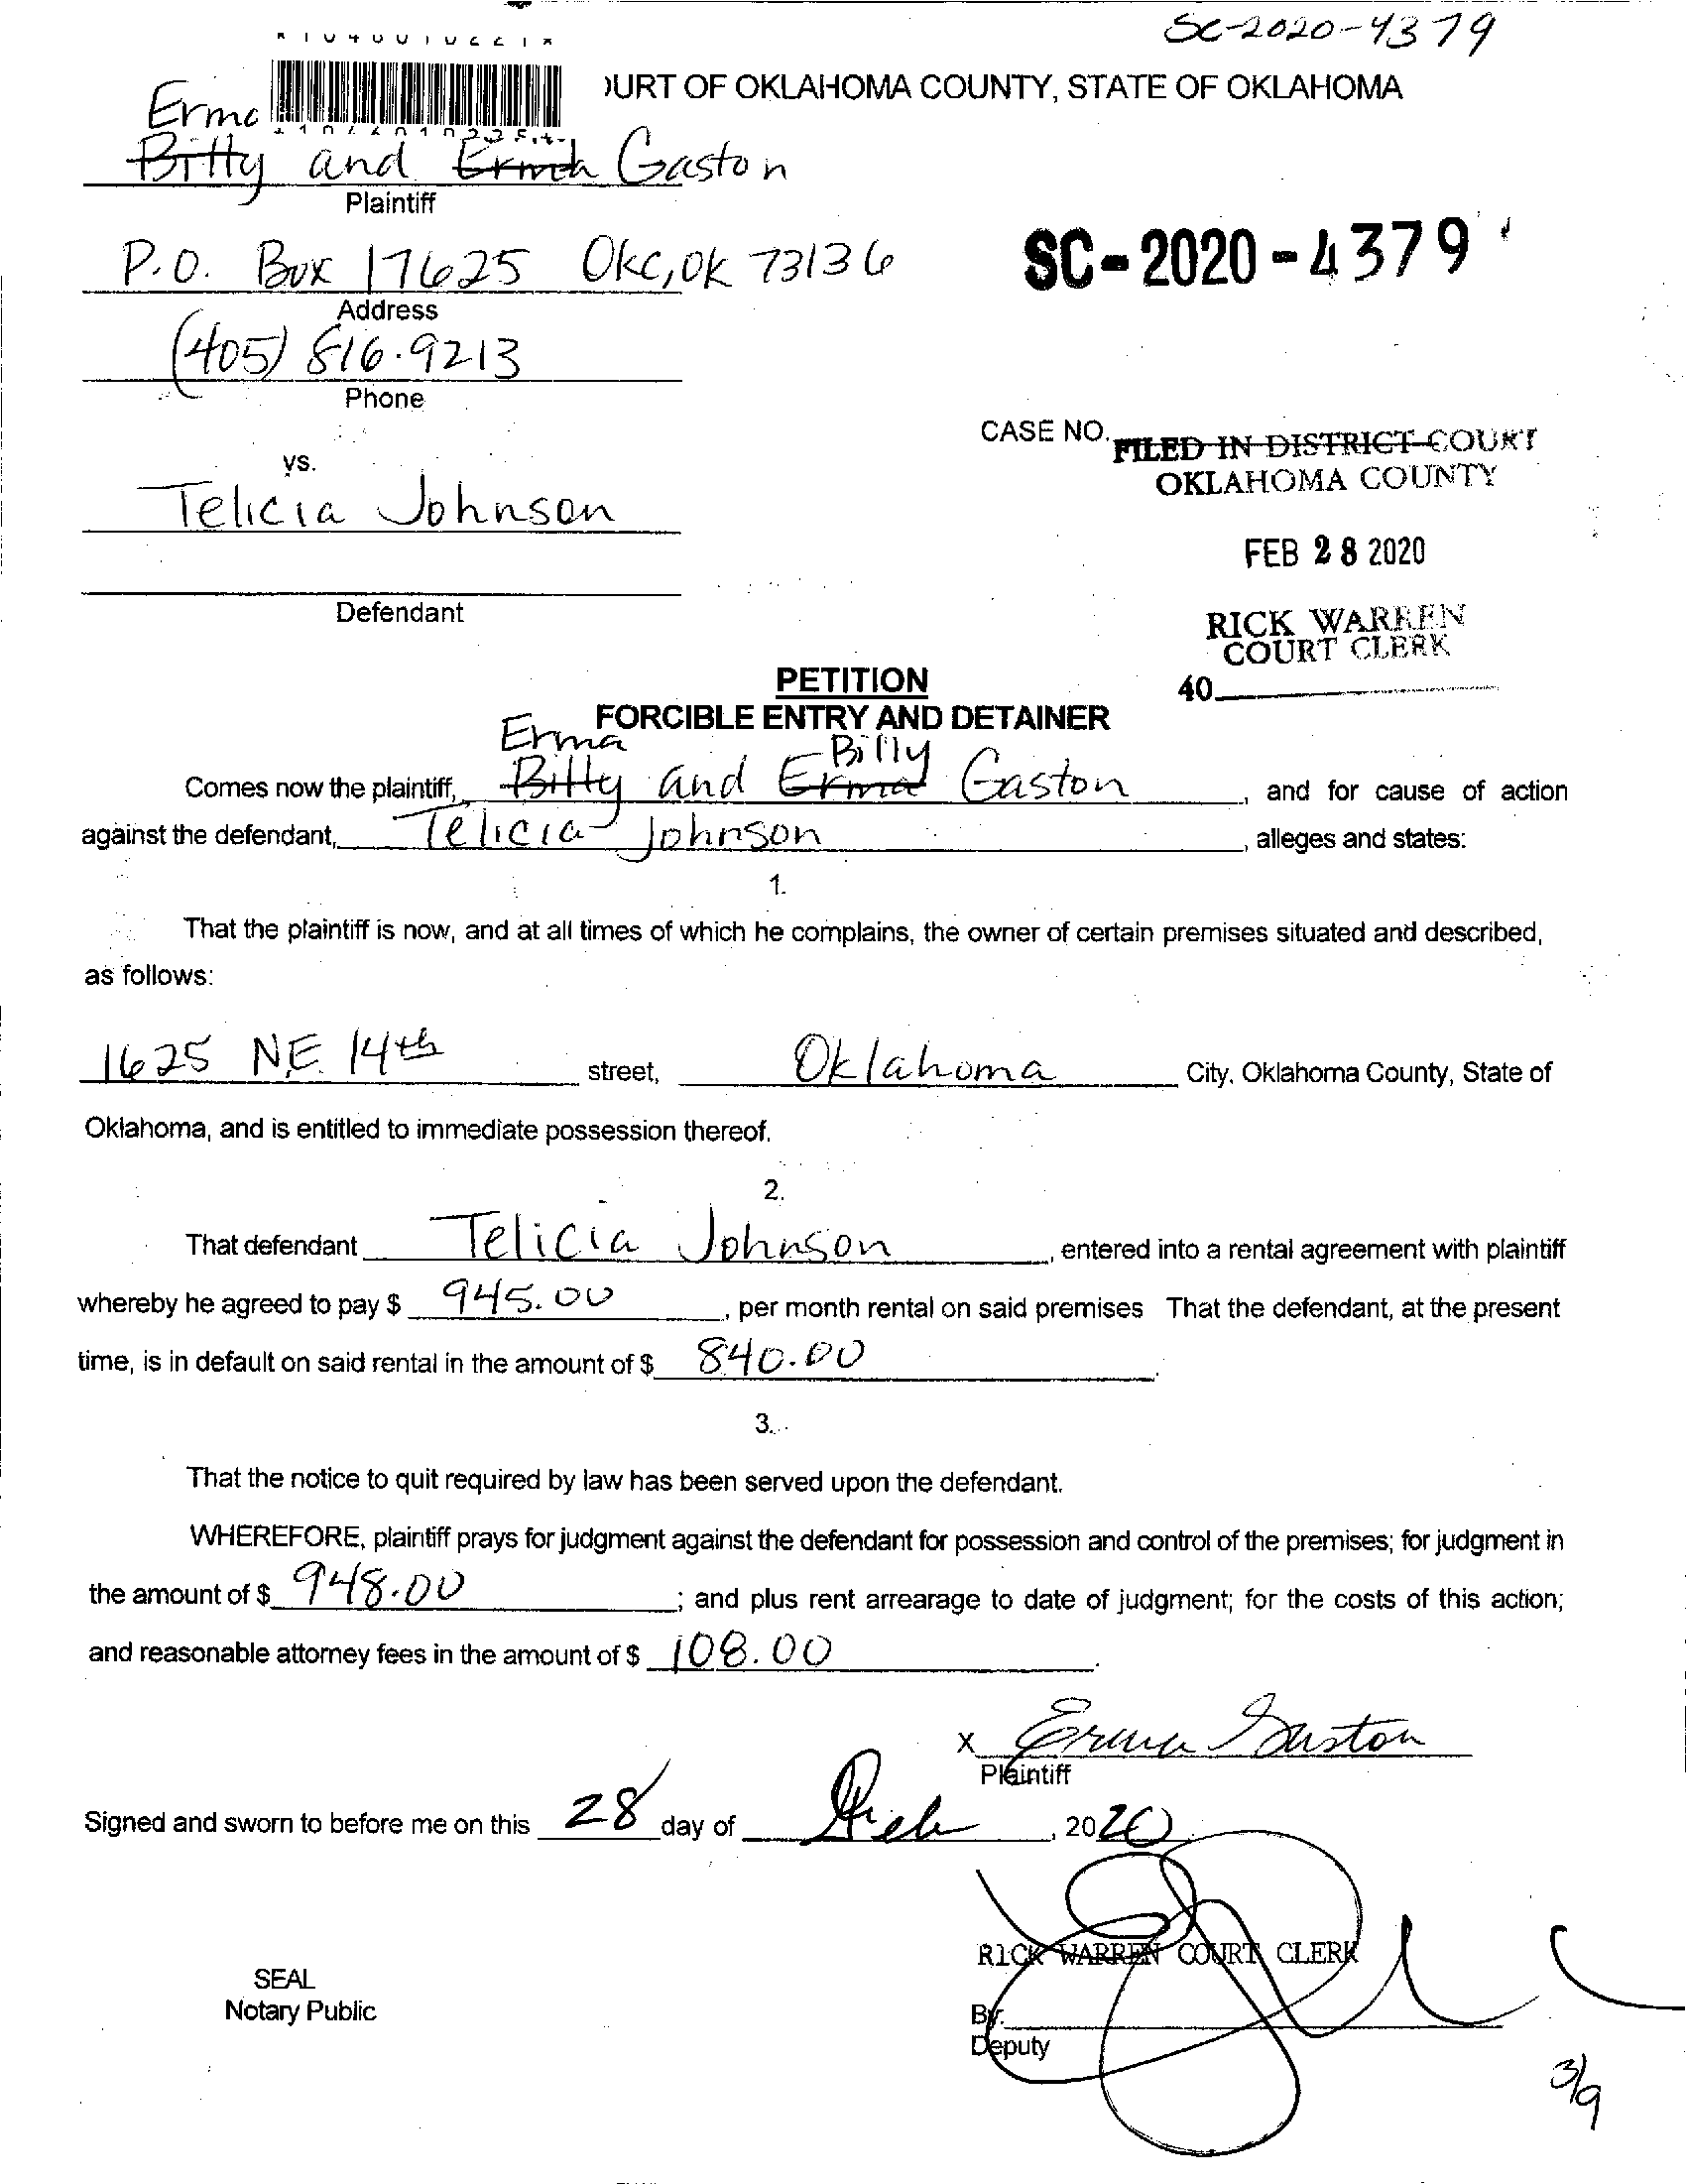 SC-2020-4379
OURT OF OKLAHOMA COUNTY, STATE OF OKLAHOMA
Erma
Billy and Erma Gaston
Plaintiff
P.O. Box 17625 OKC, OK 73136
Address
SC-2020-4379
(405) 816-9213
Phone
CASE NO.
FILED IN DISTRICT COURT
OKLAHOMA COUNTY
vs.
Telicia Johnson
FEB 28 2020
Defendant
RICK WARREN
COURT CLERK
40
PETITION
FORCIBLE ENTRY AND DETAINER
Erma Billy
Comes now the plaintiff, Billy and Erma Gaston, and for cause of action
against the defendant, Telicia Johnson, alleges and states:
1.
That the plaintiff is now, and at all times of which he complains, the owner of certain premises situated and described,
as follows:
1625 NE 14th street, Oklahoma City, Oklahoma County, State of
Oklahoma, and is entitled to immediate possession thereof.
2.
That defendant Telicia Johnson, entered into a rental agreement with plaintiff
whereby he agreed to pay $ 945.00, per month rental on said premises That the defendant, at the present
time, is in default on said rental in the amount of $ 840.00.
3.
That the notice to quit required by law has been served upon the defendant.
WHEREFORE, plaintiff prays for judgment against the defendant for possession and control of the premises; for judgment in
the amount of $ 948.00; and plus rent arrearage to date of judgment; for the costs of this action;
and reasonable attorney fees in the amount of $ 108.00.
x Erma Gaston
Plaintiff
Signed and sworn to before me on this 28 day of Feb, 2020
RICK WARREN COURT CLERK
SEAL
Notary Public
By:
Deputy
3/9